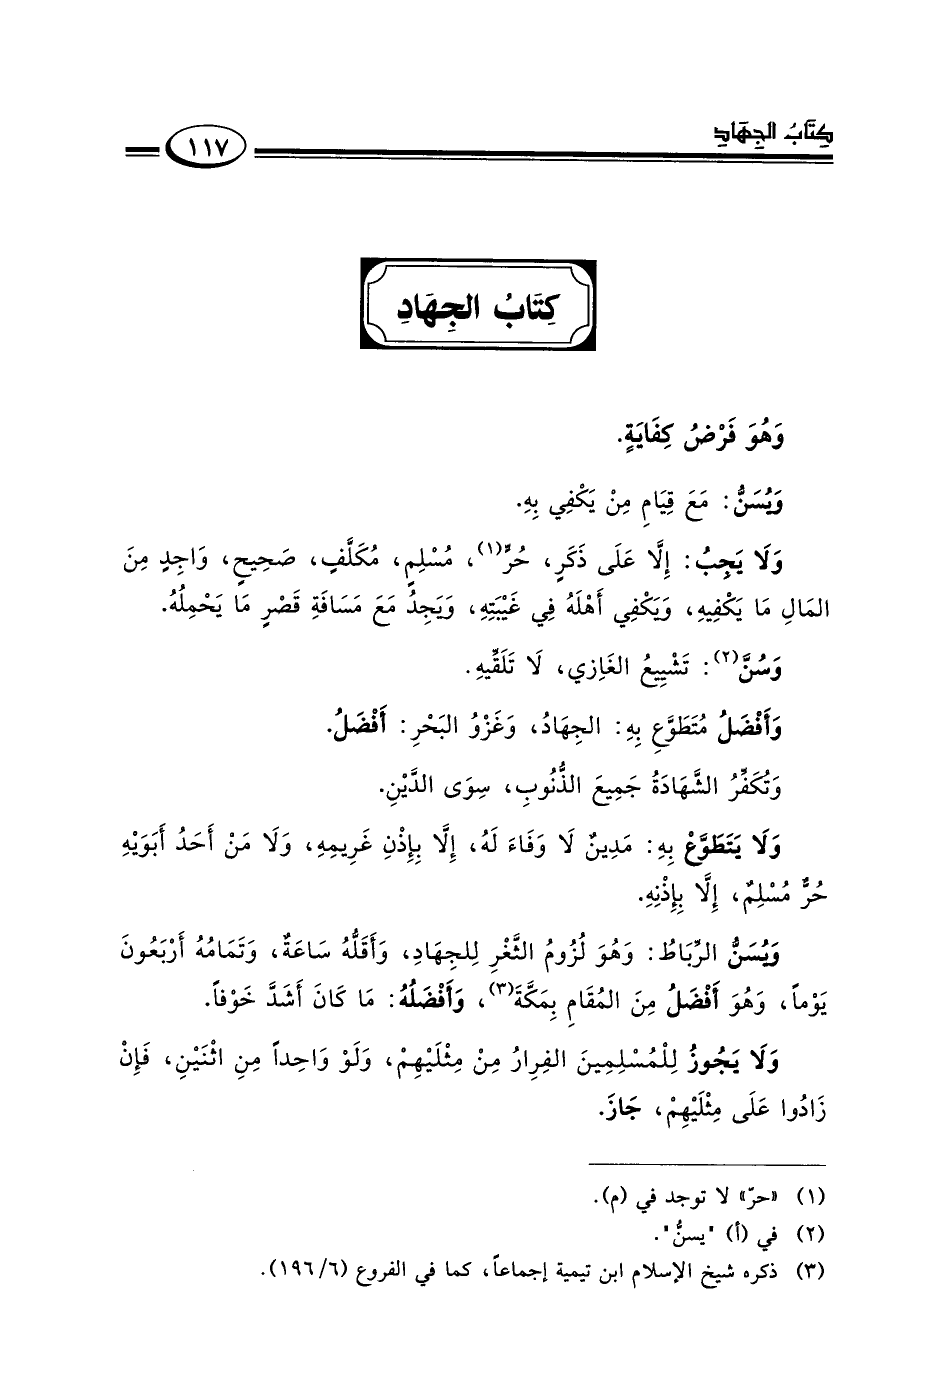 كِتَابُ الجِهَادِ
١١٧
كِتَابُ الجِهَادِ
وَهُوَ فَرْضُ كِفَايَةٍ.
وَيُسَنُّ: مَعَ قِيَامِ مِنْ يَكْفِي بِهِ.
وَلَا يَجِبُ: إِلَّا عَلَى ذَكَرٍ، حُرٍّ(١)، مُسْلِمٍ، مُكَلَّفٍ، صَحِيحٍ، وَاجِدٍ مِنَ
المَالِ مَا يَكْفِيهِ، وَيَكْفِي أَهْلَهُ فِي غَيْبَتِهِ، وَيَجِدُ مَعَ مَسَافَةِ قَصْرٍ مَا يَحْمِلُهُ.
وَسُنَّ(٢): تَشْيِيعُ الغَازِي، لَا تَلَقِّيهِ.
وَأَفْضَلُ مُتَطَوَّعٍ بِهِ: الجِهَادُ، وَغَزْوُ البَحْرِ: أَفْضَلُ.
وَتُكَفِّرُ الشَّهَادَةُ جَمِيعَ الذُّنُوبِ، سِوَى الدَّيْنِ.
وَلَا يَتَطَوَّعْ بِهِ: مَدِينٌ لَا وَفَاءَ لَهُ، إِلَّا بِإِذْنِ غَرِيمِهِ، وَلَا مَنْ أَحَدُ أَبَوَيْهِ
حُرٌّ مُسْلِمٌ، إِلَّا بِإِذْنِهِ.
وَيُسَنُّ الرِّبَاطُ: وَهُوَ لُزُومُ الثَّغْرِ لِلجِهَادِ، وَأَقَلُّهُ سَاعَةٌ، وَتَمَامُهُ أَرْبَعُونَ
يَوْماً، وَهُوَ أَفْضَلُ مِنَ المُقَامِ بِمَكَّةَ(٣)، وَأَفْضَلُهُ: مَا كَانَ أَشَدَّ خَوْفاً.
وَلَا يَجُوزُ لِلْمُسْلِمِينَ الفِرَارُ مِنْ مِثْلَيْهِمْ، وَلَوْ وَاحِداً مِنِ اثْنَيْنِ، فَإِنْ
زَادُوا عَلَى مِثْلَيْهِمْ، جَازَ.
(١) «حرّ» لا توجد في (م).
(٢) في (أ) "يسنُّ".
(٣) ذكره شيخ الإسلام ابن تيمية إجماعاً، كما في الفروع (١٩٦/٦).